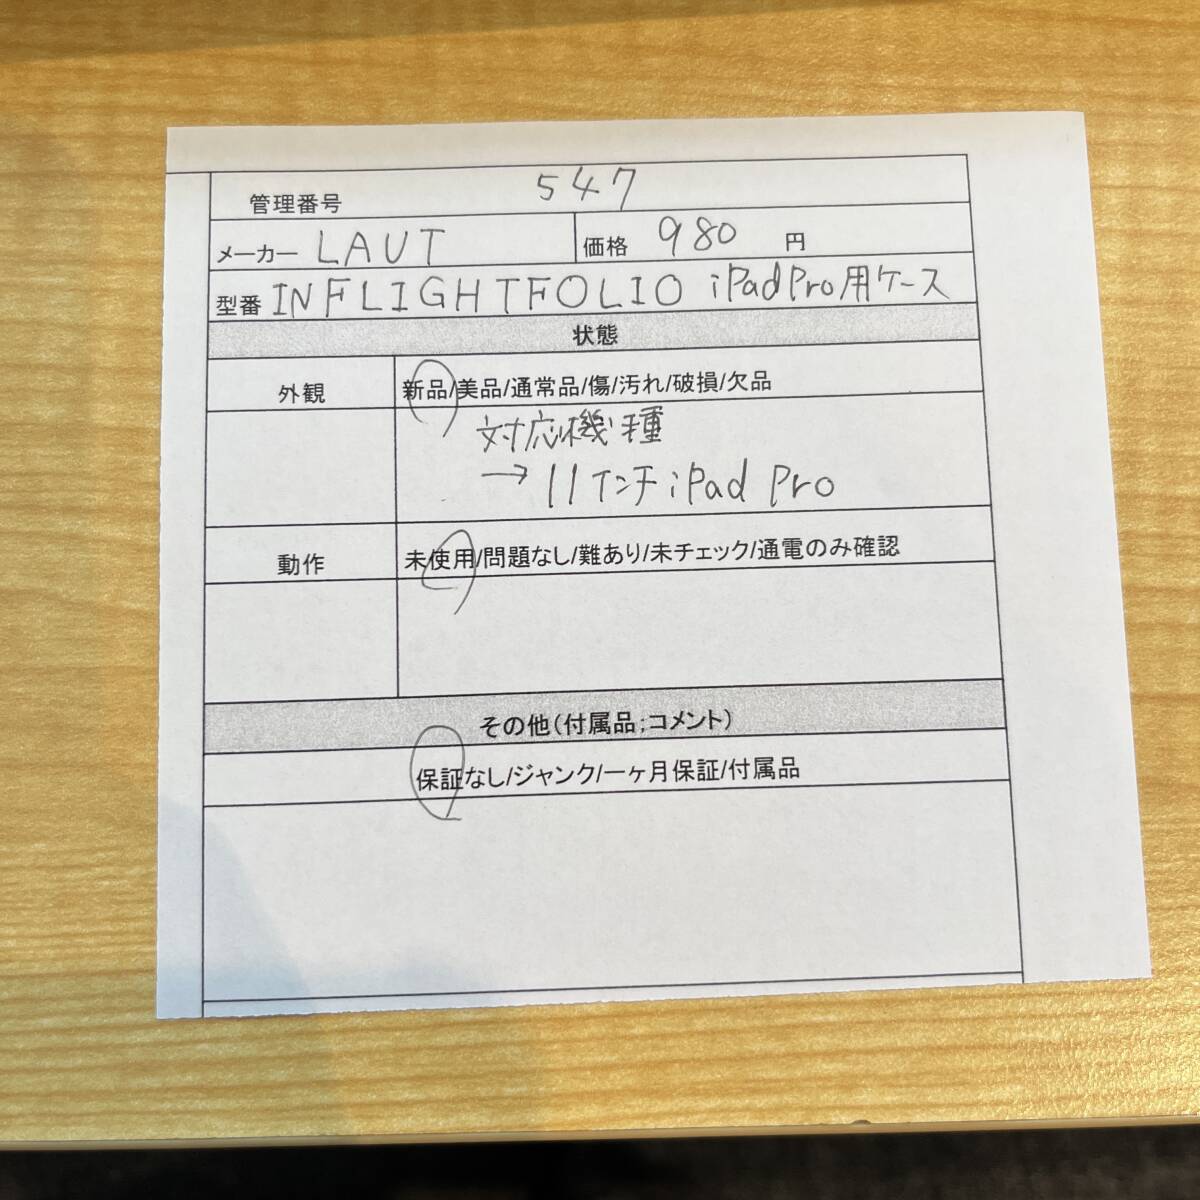 管理番号 547
メーカー LAUT 価格 980 円
型番 INFLIGHTFOLIO iPadPro用ケース
状態
外観 新品/美品/通常品/傷/汚れ/破損/欠品
対応機種
→11インチiPad Pro
動作 未使用/問題なし/難あり/未チェック/通電のみ確認
その他(付属品;コメント)
保証なし/ジャンク/一ヶ月保証/付属品